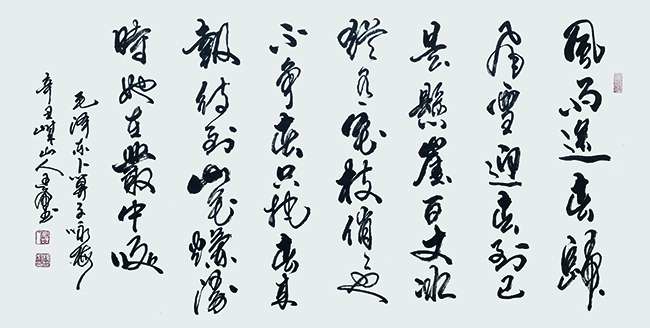 風雨送春歸
飛雪迎春到已
是懸崖百丈冰
猶有花枝俏々也
不争春只把春来
報待到山花爛漫
時她在叢中咲
毛泽东卜算子咏梅
辛丑峄山人王